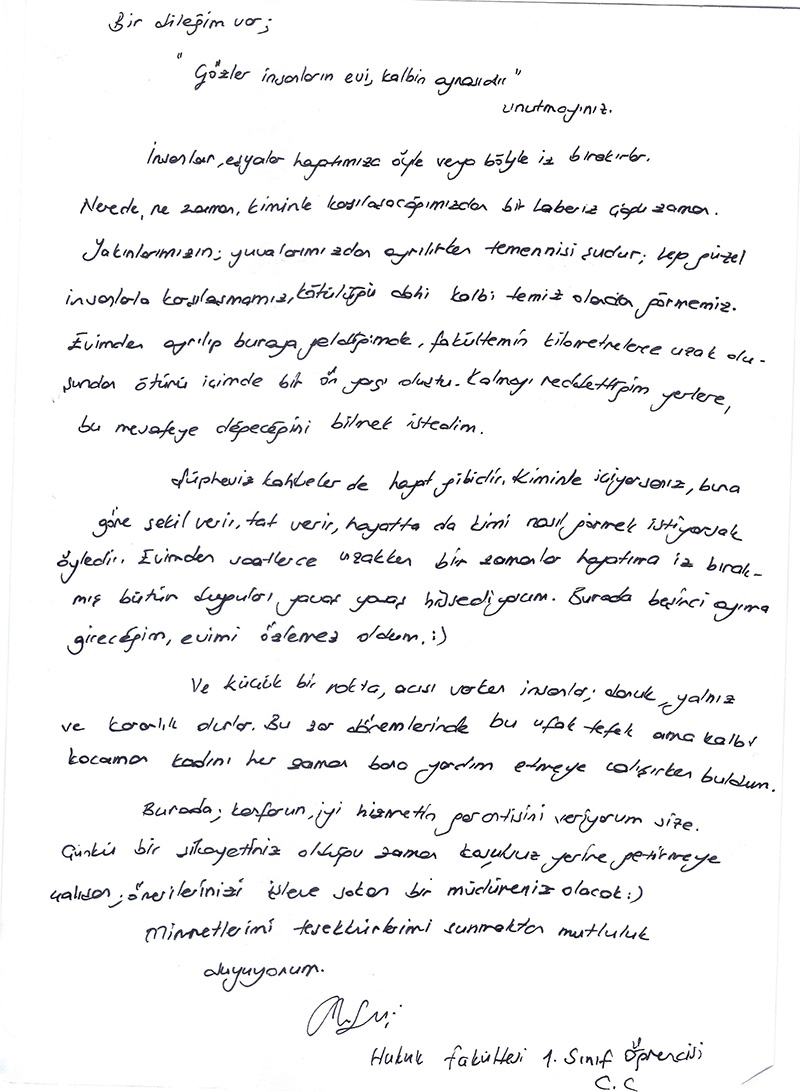 Bir dileğim var;
"Gözler insanların evi, kalbin aynasıdır"
unutmayınız.
İnsanlar, eşyalar hayatımıza öyle veya böyle iz bırakırlar.
Nerede, ne zaman, kiminle karşılaşacağımızdan bir haberiz çoğu zaman.
Yakınlarımızın; yuvalarımızdan ayrılırken temennisi şudur; hep güzel
insanlarla karşılaşmamız, kötülüğü dahi kalbi temiz olarak görmemiz.
Evimden ayrılıp buraya geldiğimde, fakültemin kilometrelerce uzak olu-
şundan ötürü içimde bir ön yargı oluştu. Kalmayı reddettiğim yerlere,
bu mesafeye değeceğini bilmek istedim.
Şüphesiz kahveler de hayat gibidir. Kiminle içiyorsanız, buna
göre şekil verir, tat verir, hayatta da kimi nasıl görmek istiyorsak
öyledir. Evimden saatlerce uzakken bir zamanlar hayatıma iz bırak-
mış bütün duyguları yavaş yavaş hissediyorum. Burada beşinci ayıma
gireceğim, evimi özlemez oldum. :)
Ve küçük bir nokta, acısı varken insanlar; donuk, yalnız
ve karanlık olurlar. Bu zor dönemlerinde bu ufak tefek ama kalbi
kocaman kadını her zaman bana yardım etmeye çalışırken buldum.
Burada; konforun, iyi hizmetin garantisini veriyorum size.
Çünkü bir şikayetiniz olduğu zaman koşulsuz yerine getirmeye
çalışan; önerilerinizi işleve sokan bir müdüreniz olacak :)
Minnetlerimi teşekkürlerimi sunmaktan mutluluk
duyuyorum.
Hukuk Fakültesi 1. Sınıf Öğrencisi
C.C